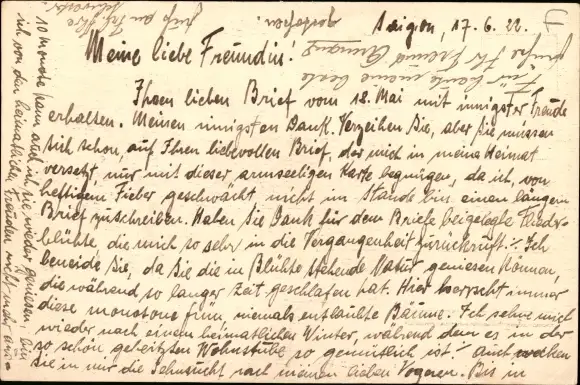 Saigon, 17.6.22.
Meine liebe Freundin!
Ihren lieben Brief vom 18. Mai mit innigster Freude
erhalten. Meinen innigsten Dank. Verzeihen Sie, aber Sie müssen
sich schon, auf Ihren liebevollen Brief, der mich in meine Heimat
versetzt nur mit dieser armseeligen Karte begnügen, da ich, von
heftigem Fieber geschwächt nicht im Stande bin einen längern
Brief zu schreiben. Haben Sie Dank für dem Briefe beigelegte
blühte, die mich so sehr in die Vergangenheit zurückruft. Ich
beneide Sie, da Sie die in Blühte stehende Natur geniesen können,
die während so langer Zeit geschlafen hat. Hier herrscht immer
diese monotone niemals entlaubte Bäume. Ich sehne mich
wieder nach einem heimatlichen Winter, während dem es in der
so schön geheitzten Wohnstube so gemütlich ist! auch wecken
Sie in mir die Sehnsucht nach meinen lieben Bis in
10 Monate kann auch ich sie wieder geniesen
ich von den heimatlichen Freuden nicht mehr